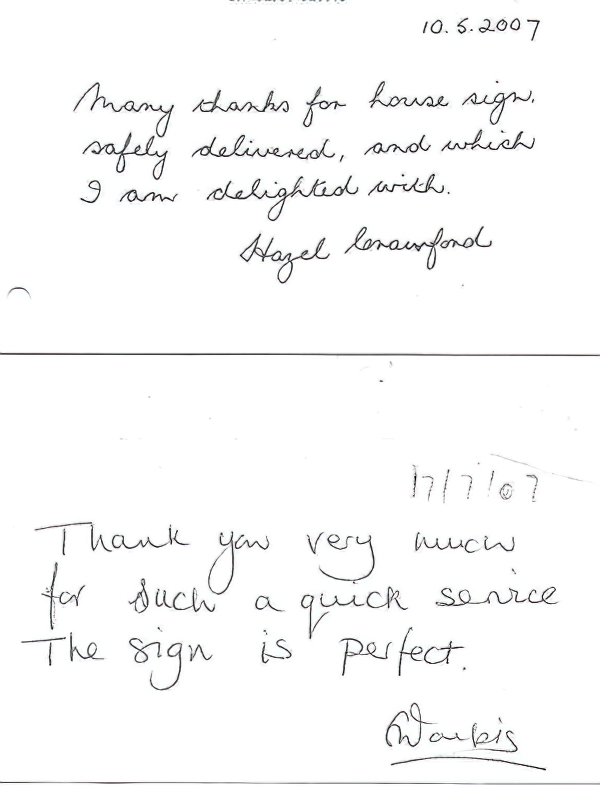 10.5.2007
Many thanks for house sign.
safely delivered, and which
I am delighted with.
Hazel Crawford
17/7/07
Thank you very much
for such a quick service
The sign is perfect.